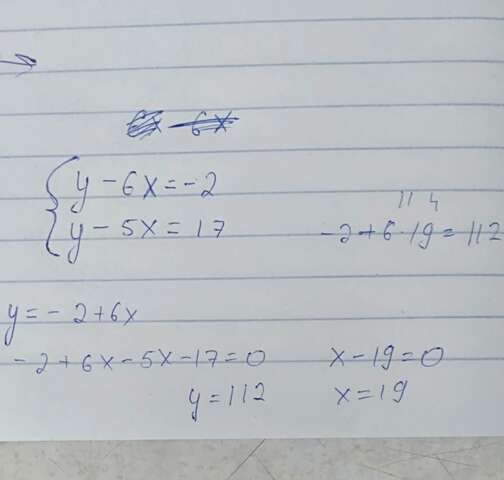 6x - 6x
y - 6x = -2
y - 5x = 17
11 4
-2 + 6 · 19 = 112
y = - 2 + 6x
- 2 + 6x - 5x - 17 = 0 x - 19 = 0
y = 112 x = 19